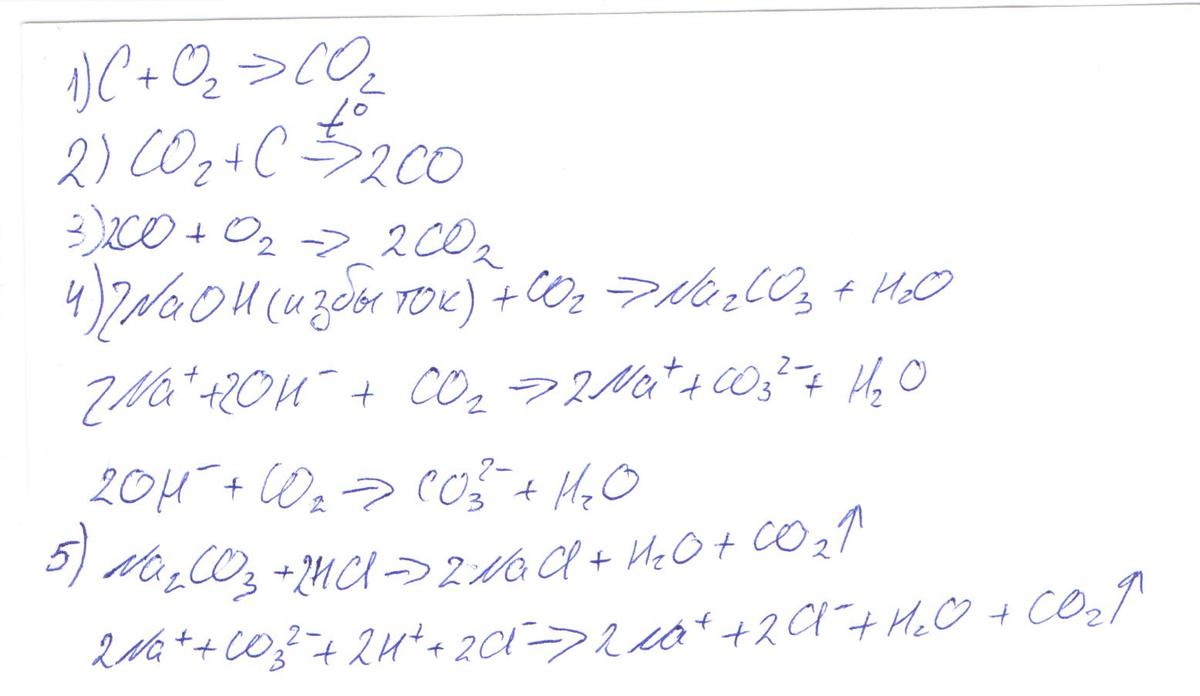 1) C + O₂ → CO₂
2) CO₂ + C t° → 2CO
3) 2CO + O₂ → 2CO₂
4) 2NaOH (избыток) + CO₂ → Na₂CO₃ + H₂O
2Na⁺ + 2OH⁻ + CO₂ → 2Na⁺ + CO₃²⁻ + H₂O
2OH⁻ + CO₂ → CO₃²⁻ + H₂O
5) Na₂CO₃ + 2HCl → 2NaCl + H₂O + CO₂↑
2Na⁺ + CO₃²⁻ + 2H⁺ + 2Cl⁻ → 2Na⁺ + 2Cl⁻ + H₂O + CO₂↑